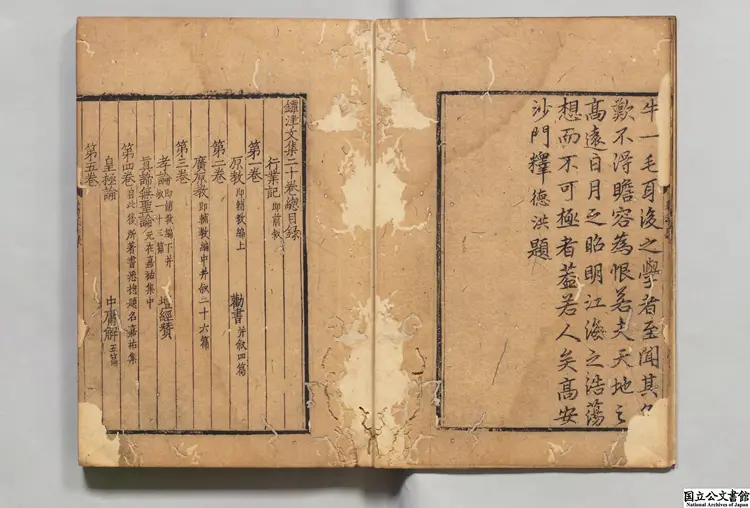 牛一毛耳後之學者至聞其
歎不淂瞻容為恨若夫天地之
高遠日月之昭明江海之浩蕩
想而不可極者葢若人矣高安
沙門釋德洪題
鐔津文集二十卷總目録
行業記 即前叙
第一卷
原教 即輔教編上 勸書 并叙四篇
第二卷
廣原教 即輔教編中并叙二十六篇
第三卷
孝論 即輔教編下并叙一十三篇 壇經賛
真諦無聖論 元在嘉祐集中
第四卷 自此後所著書悉揔題名嘉祐集
皇極論 中庸解 五篇
第五卷
国立公文書館
National Archives of Japan